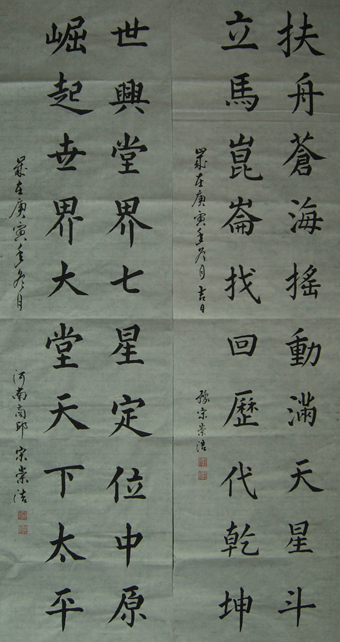 扶舟蒼海搖動滿天星斗
立馬崑崙找回歷代乾坤
歲在庚寅年冬月吉日
豫宋崇浩
世興堂界七星定位中原
崛起世界大堂天下太平
歲在庚寅年冬月
河南商邱宋崇浩